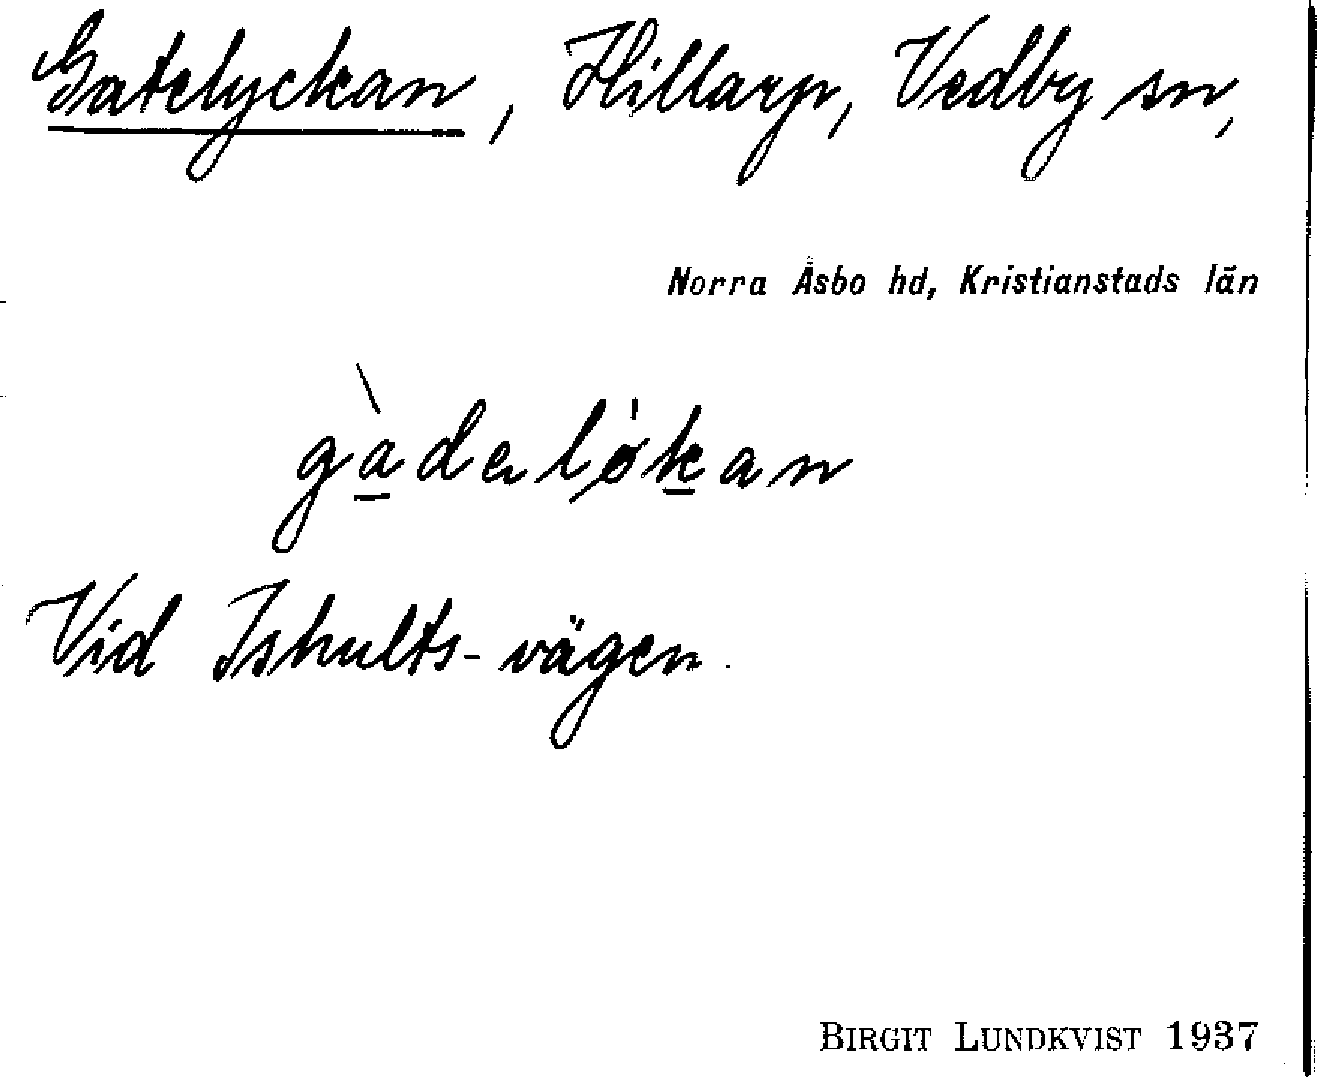 Gatelyckan, Hillarp, Vedby sn,
Norra Åsbo hd, Kristianstads län
gàdeløkan
Vid Ishults-vägen.
BIRGIT LUNDKVIST 1937